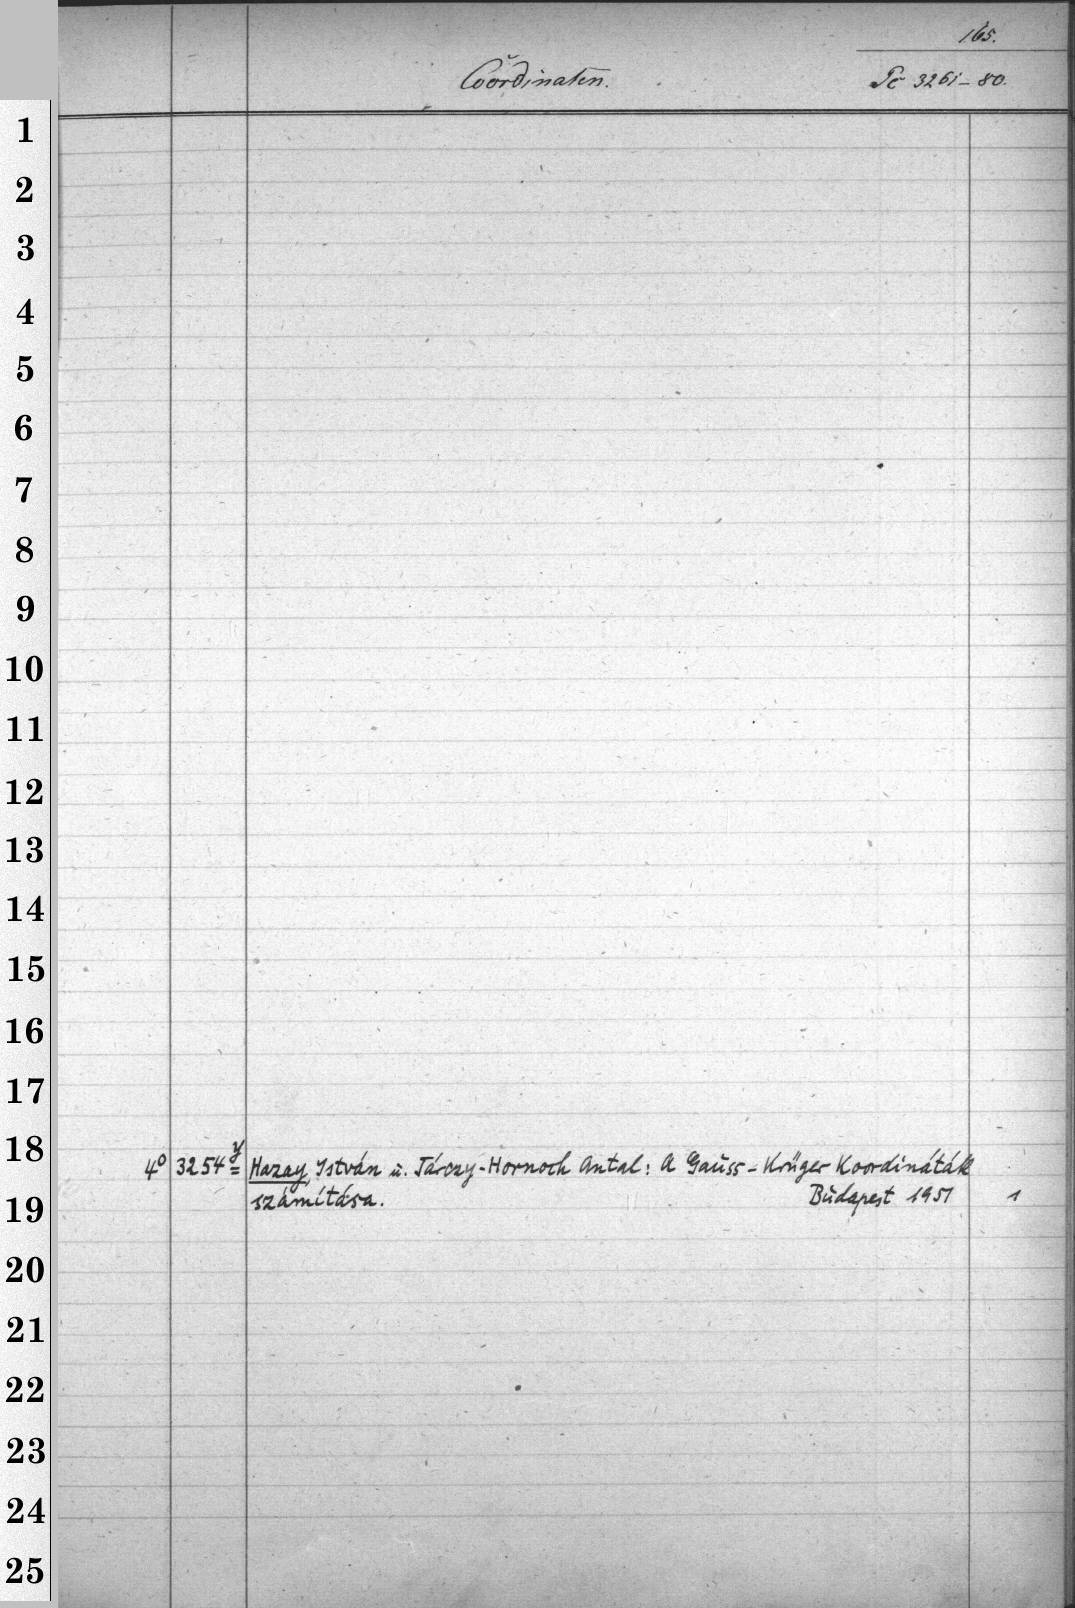 165.
Coordinaten.
Pc 3261-80.
1
2
3
4
5
6
7
8
9
10
11
12
13
14
15
16
17
18
4º 3254 y = Hazay, István u. Tárczy-Hornoch Antal: A Gauss-Krüger Koordináták
számítása. Budapest 1951 1
19
20
21
22
23
24
25